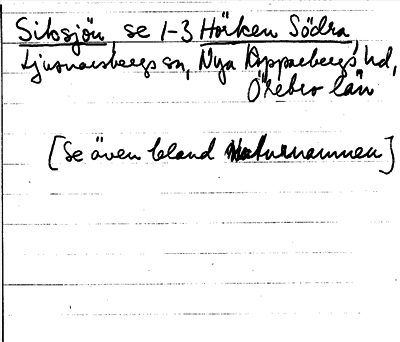 Siksjön, se 1-3 Hörken Södra,
Ljusnarsbergs sn, Nya Kopparbergs hd,
Örebro län
[Se även bland naturnamnen]